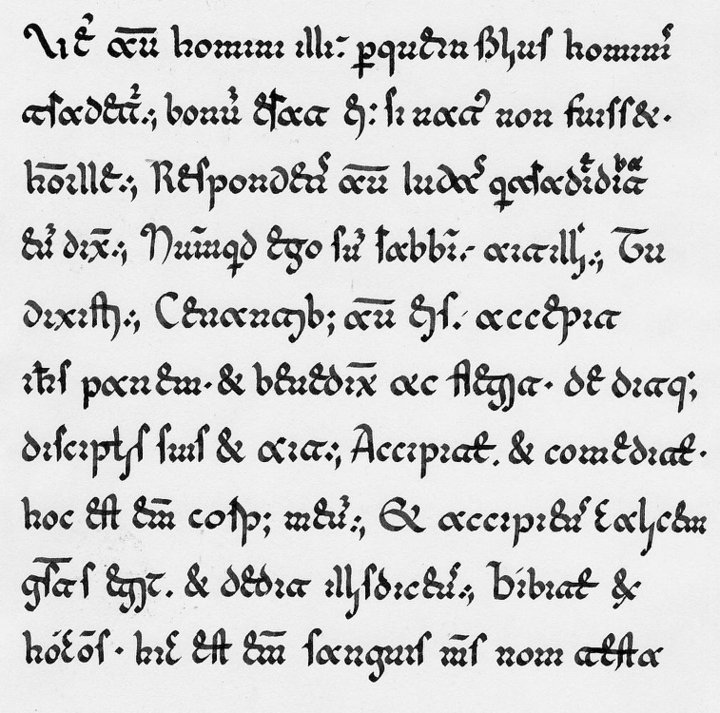 Vę aū homini illi· pquem filius homini
tradet᷑.; bonū erat ei: si natꝰ non fuisset·
hō ille.; Respondens aū Iudas q tradidit
eū dix̄.; Nūquid ego sū rabbi.· ait illi.; Tu
dixisti.; Cenantib; aū eis.· accepit
ih̄s panem· & benedix̄ ac fregit· deditq;
discipulis suis & ait.; Accipite. & comedite·
hoc est em̄ corp; meū.; Et accipiens calicem
gr̄as egit. & dedit illis dicens.; Bibite ex
hoc om̄s· hic est em̄ sanguis m̄s noui testa